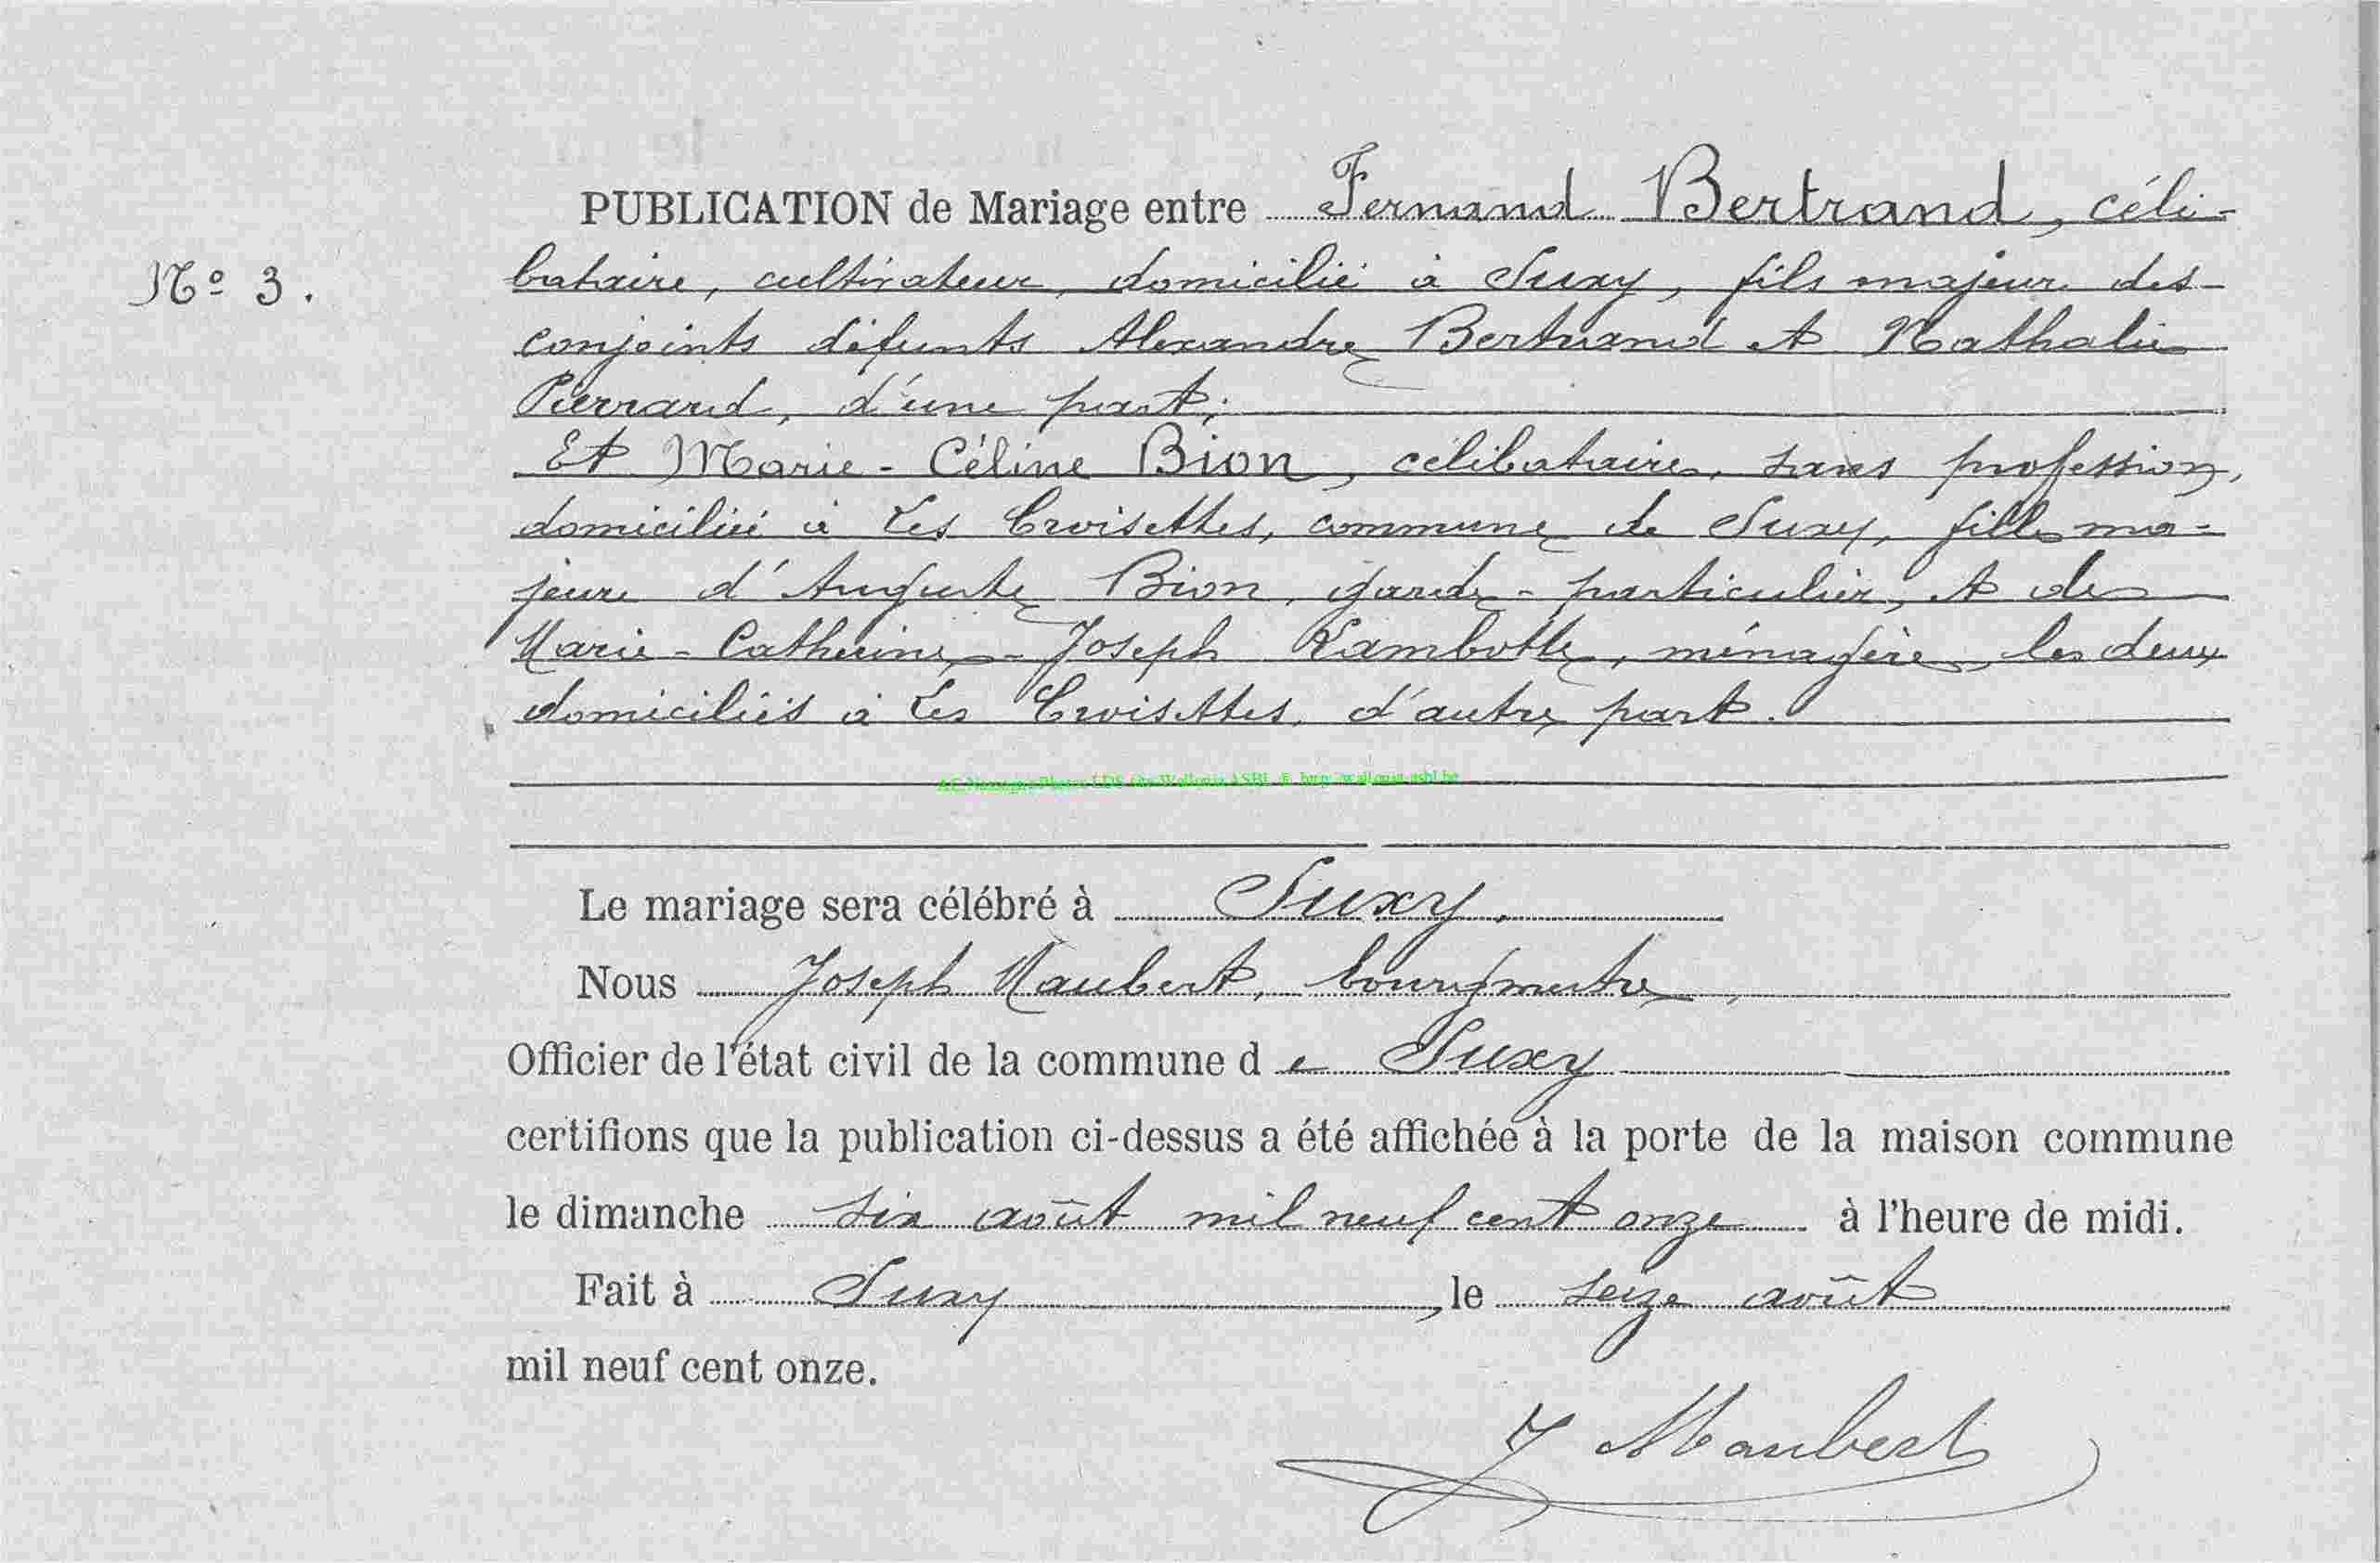 PUBLICATION de Mariage entre Fernand Bertrand, céli-
Nº 3.
bataire, cultivateur, domicilié à Suxy, fils majeur des
conjoints défunts Alexandre Bertrand et Nathalie
Pierrard, d'une part;
Et Marie-Céline Bion, célibataire, sans profession,
domiciliée à Les Croisettes, commune de Suxy, fille ma-
jeure d'Auguste Bion, garde-particulier, et de
Marie-Catherine-Joseph Lambotte, ménagère, les deux
domiciliés à Les Croisettes, d'autre part.
Le mariage sera célébré à Suxy.
Nous Joseph Maubert, bourgmestre,
Officier de l'état civil de la commune de Suxy
certifions que la publication ci-dessus a été affichée à la porte de la maison commune
le dimanche six août mil neuf cent onze à l'heure de midi.
Fait à Suxy, le seize août
mil neuf cent onze.
J Maubert